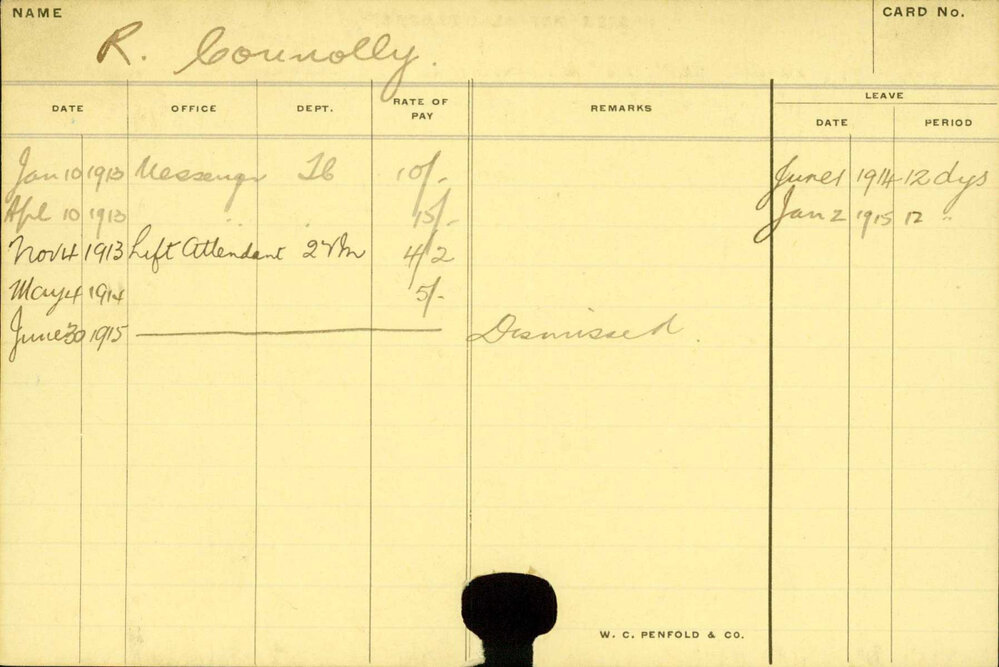 NAME
CARD No.
R. Connolly.
DATE OFFICE DEPT. RATE OF PAY REMARKS LEAVE
DATE PERIOD
Jan 10 1913 Messenger 10/- June 1 1914 12 dys
Apl 10 1913 " " 15/- Jan 2 1915 12 "
Nov 4 1913 Lift Attendant 4/2
May 4 1914 5/-
June 30 1915 Dismissed
W. C. PENFOLD & CO.